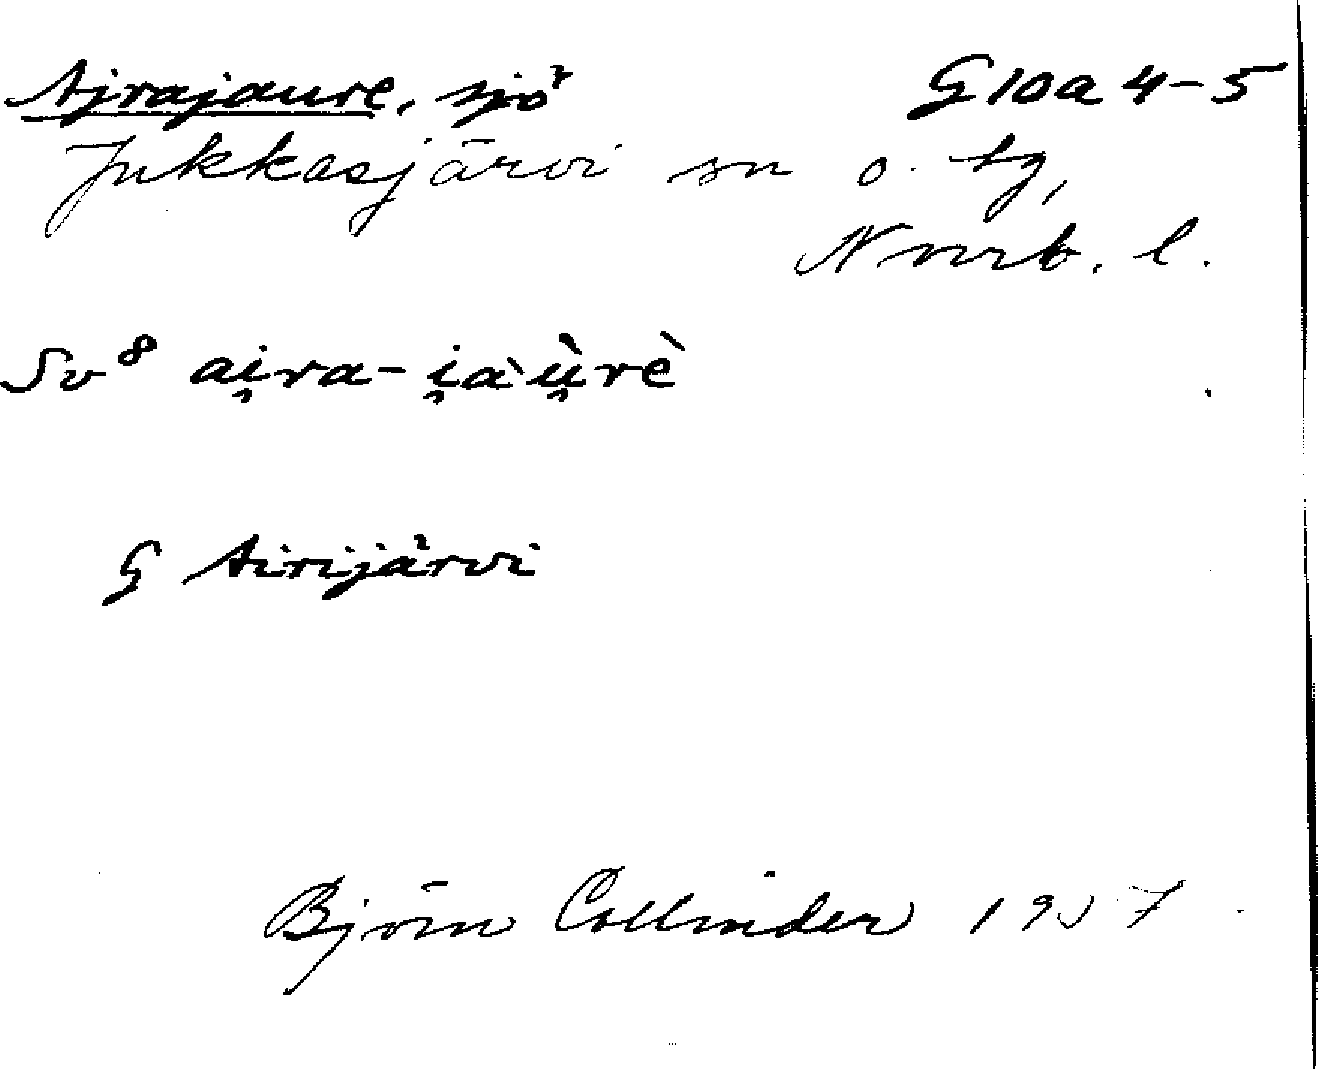 Ajrajaure, sjö G10a 4-5
Jukkasjärvi sn o. tg,
Norrb. l.
Sv⁸ ai̯ra-i̯àù̯rè
G Airijärvi
Björn Collinder 1957